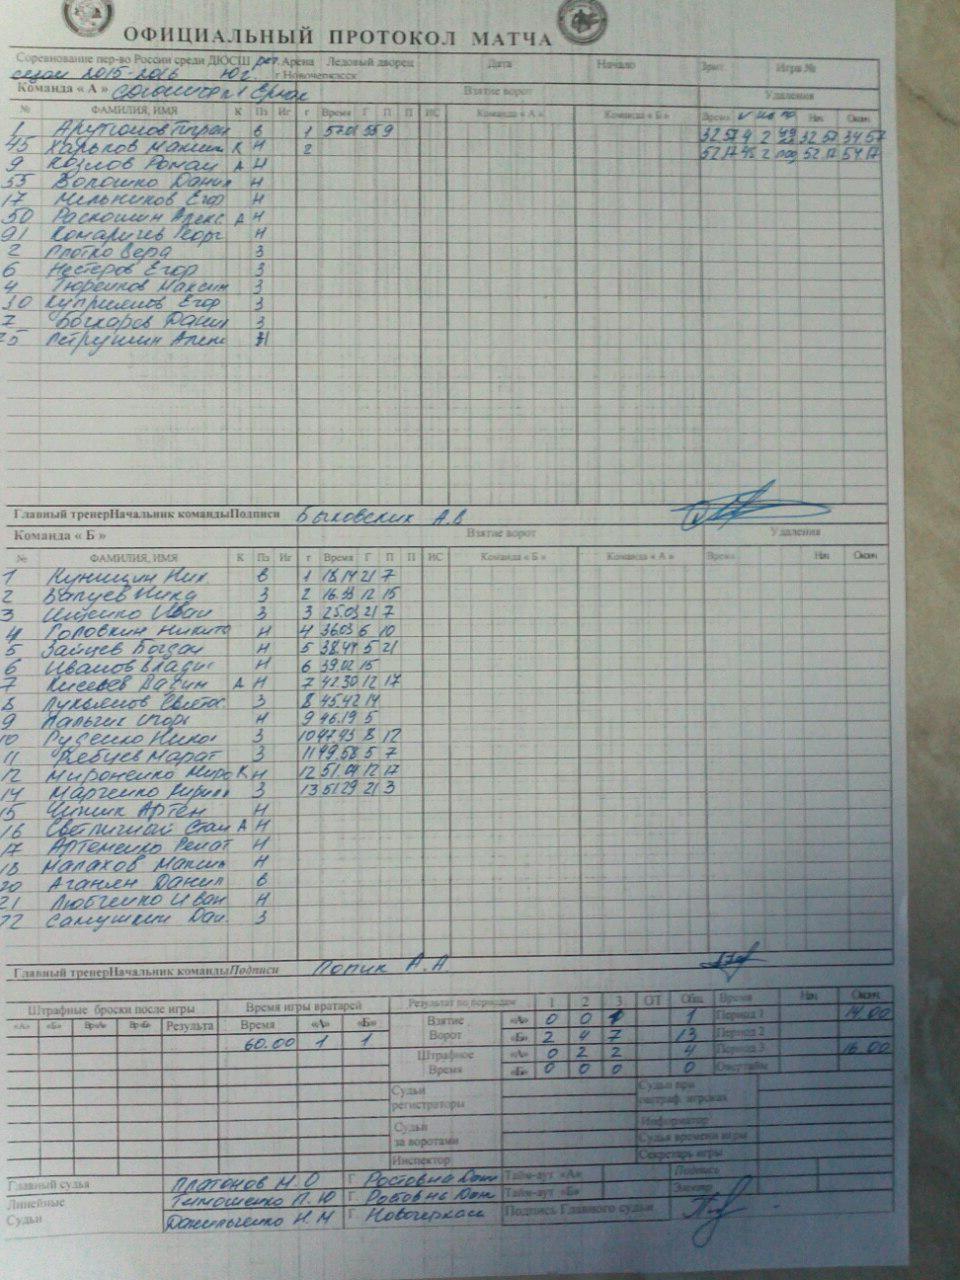 ОФИЦИАЛЬНЫЙ ПРОТОКОЛ МАТЧА
Соревнование пер-во России среди ДЮСШ рег. Арена Ледовый дворец Дата Начало Зрит. Игра №
сезон 2015-2016 Юг. г.Новочеркасск
Команда « А » Ермак Взятие ворот Удаления
№ ФАМИЛИЯ, ИМЯ К Пз Иг г Время Г П П ИС Команда « А » Команда « Б » Время Нач Оконч
1 В 1 57.01 55 9 32 57 4 2 32 57 34 57
45 Харьков Максим К Н 2 52 17 45 2 52 17 54 17
9 Козлов Роман А Н
55 Волошко Данил Н
17 Мельников Егор Н
50 Раскошин Алекс А Н
91 Комаричев Георг Н
2 Плотко Вера З
6 Нестеров Егор З
4 Тюрейков Максим З
30 Куприянов Егор З
7 Бочкарев Данил З
75 Петрушин Алек Н
Главный тренерНачальник командыПодписи Быковских А.В
Команда « Б » Взятие ворот Удаления
№ ФАМИЛИЯ, ИМЯ К Пз Иг г Время Г П П ИС Команда « Б » Команда « А » Время Нач Оконч
1 Куницин Ник В 1 18.14 21 7
2 Валуев Никд З 2 16.33 12 15
3 Ищенко Иван З 3 25.03 21 7
4 Головкин Никита Н 4 36.03 6 10
5 Зайцев Богдан Н 5 38.44 5 21
6 Иванов Влади Н 6 39.02 15
7 А Н 7 42.30 12 17
8 Лукьянов Святос З 8 45.42 14
9 Пальчик Игорь Н 9 46.19 5
10 Руденко Никол З 10 47.43 8 12
11 Кебиев Марат З 11 49.58 5 7
12 Мироненко Миро К Н 12 51.04 12 17
14 Марченко Кирилл З 13 51.29 21 3
15 Чижик Артем Н
16 Светличный Стан А Н
17 Артеменко Ренат Н
18 Малахов Максим Н
20 Аганян Данил В
21 Любченко Иван Н
22 Самушкин Дан З
Главный тренерНачальник командыПодписи Попик А.А
Штрафные броски после игры Время игры вратарей Результат по периодам 1 2 3 ОТ Общ Время Нач Оконч
«А» «Б» Вр«А» Вр«Б» Результа Время «А» «Б» Взятие Ворот «А» 0 0 1 1 Период 1 14.00
60.00 1 1 «Б» 2 4 7 13 Период 2
Штрафное Время «А» 0 2 2 4 Период 3 16.00
«Б» 0 0 0 0 Овертайм
Судьи регистраторы Судьи при оштраф. игроках
Судьи за воротами Информатор
Судья времени игры
Инспектор Секретарь игры
Главный судья Платонов Н.О Г. Ростов на Дон Тайм-аут «А» Подпись
Линейные Тимошенко П.Ю Г. Ростов на Дон Тайм-аут «Б»
Судьи Данильченко Н.М Г. Новочеркасс Подпись Главного судьи